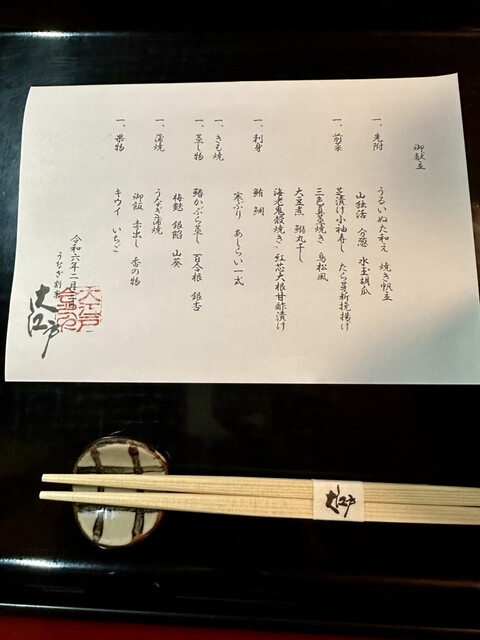 御献立
一、先附
うるいぬた和え 焼き帆立
山独活 分葱 水玉胡瓜
一、前菜
芝漬け小袖寿し たら芽新挽揚げ
三色真薯焼き 鳥松風
大豆煮 鰯丸干し
海老鬼殻焼き 紅芯大根甘酢漬け
一、刺身
鮪 鯛
寒ぶり あしらい一式
一、きも焼
一、蒸し物
鰆かぶら蒸し 百合根 銀杏
梅麩 銀餡 山葵
一、蒲焼
うなぎ蒲焼
御飯 赤出し 香の物
一、果物
キウイ いちご
令和六年二月
うなぎ割烹
大江戸
大江戸